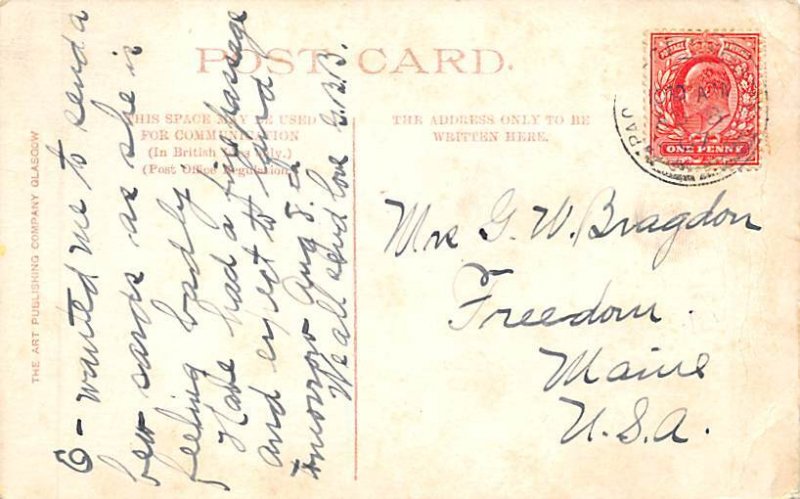 POST CARD.
THIS SPACE MAY BE USED
FOR COMMUNICATION
(In British Isles Only.)
(Post Office Regulation.)
THE ADDRESS ONLY TO BE
WRITTEN HERE.
THE ART PUBLISHING COMPANY GLASGOW
POSTAGE
ONE PENNY
O - wanted me to send a
few cards as she is
feeling badly.
Have had a fine passage
and expect to land
tomorrow Aug 8.
We all send love G.B.B.
Mrs G. W. Bragdon
Freedom.
Maine
U.S.A.